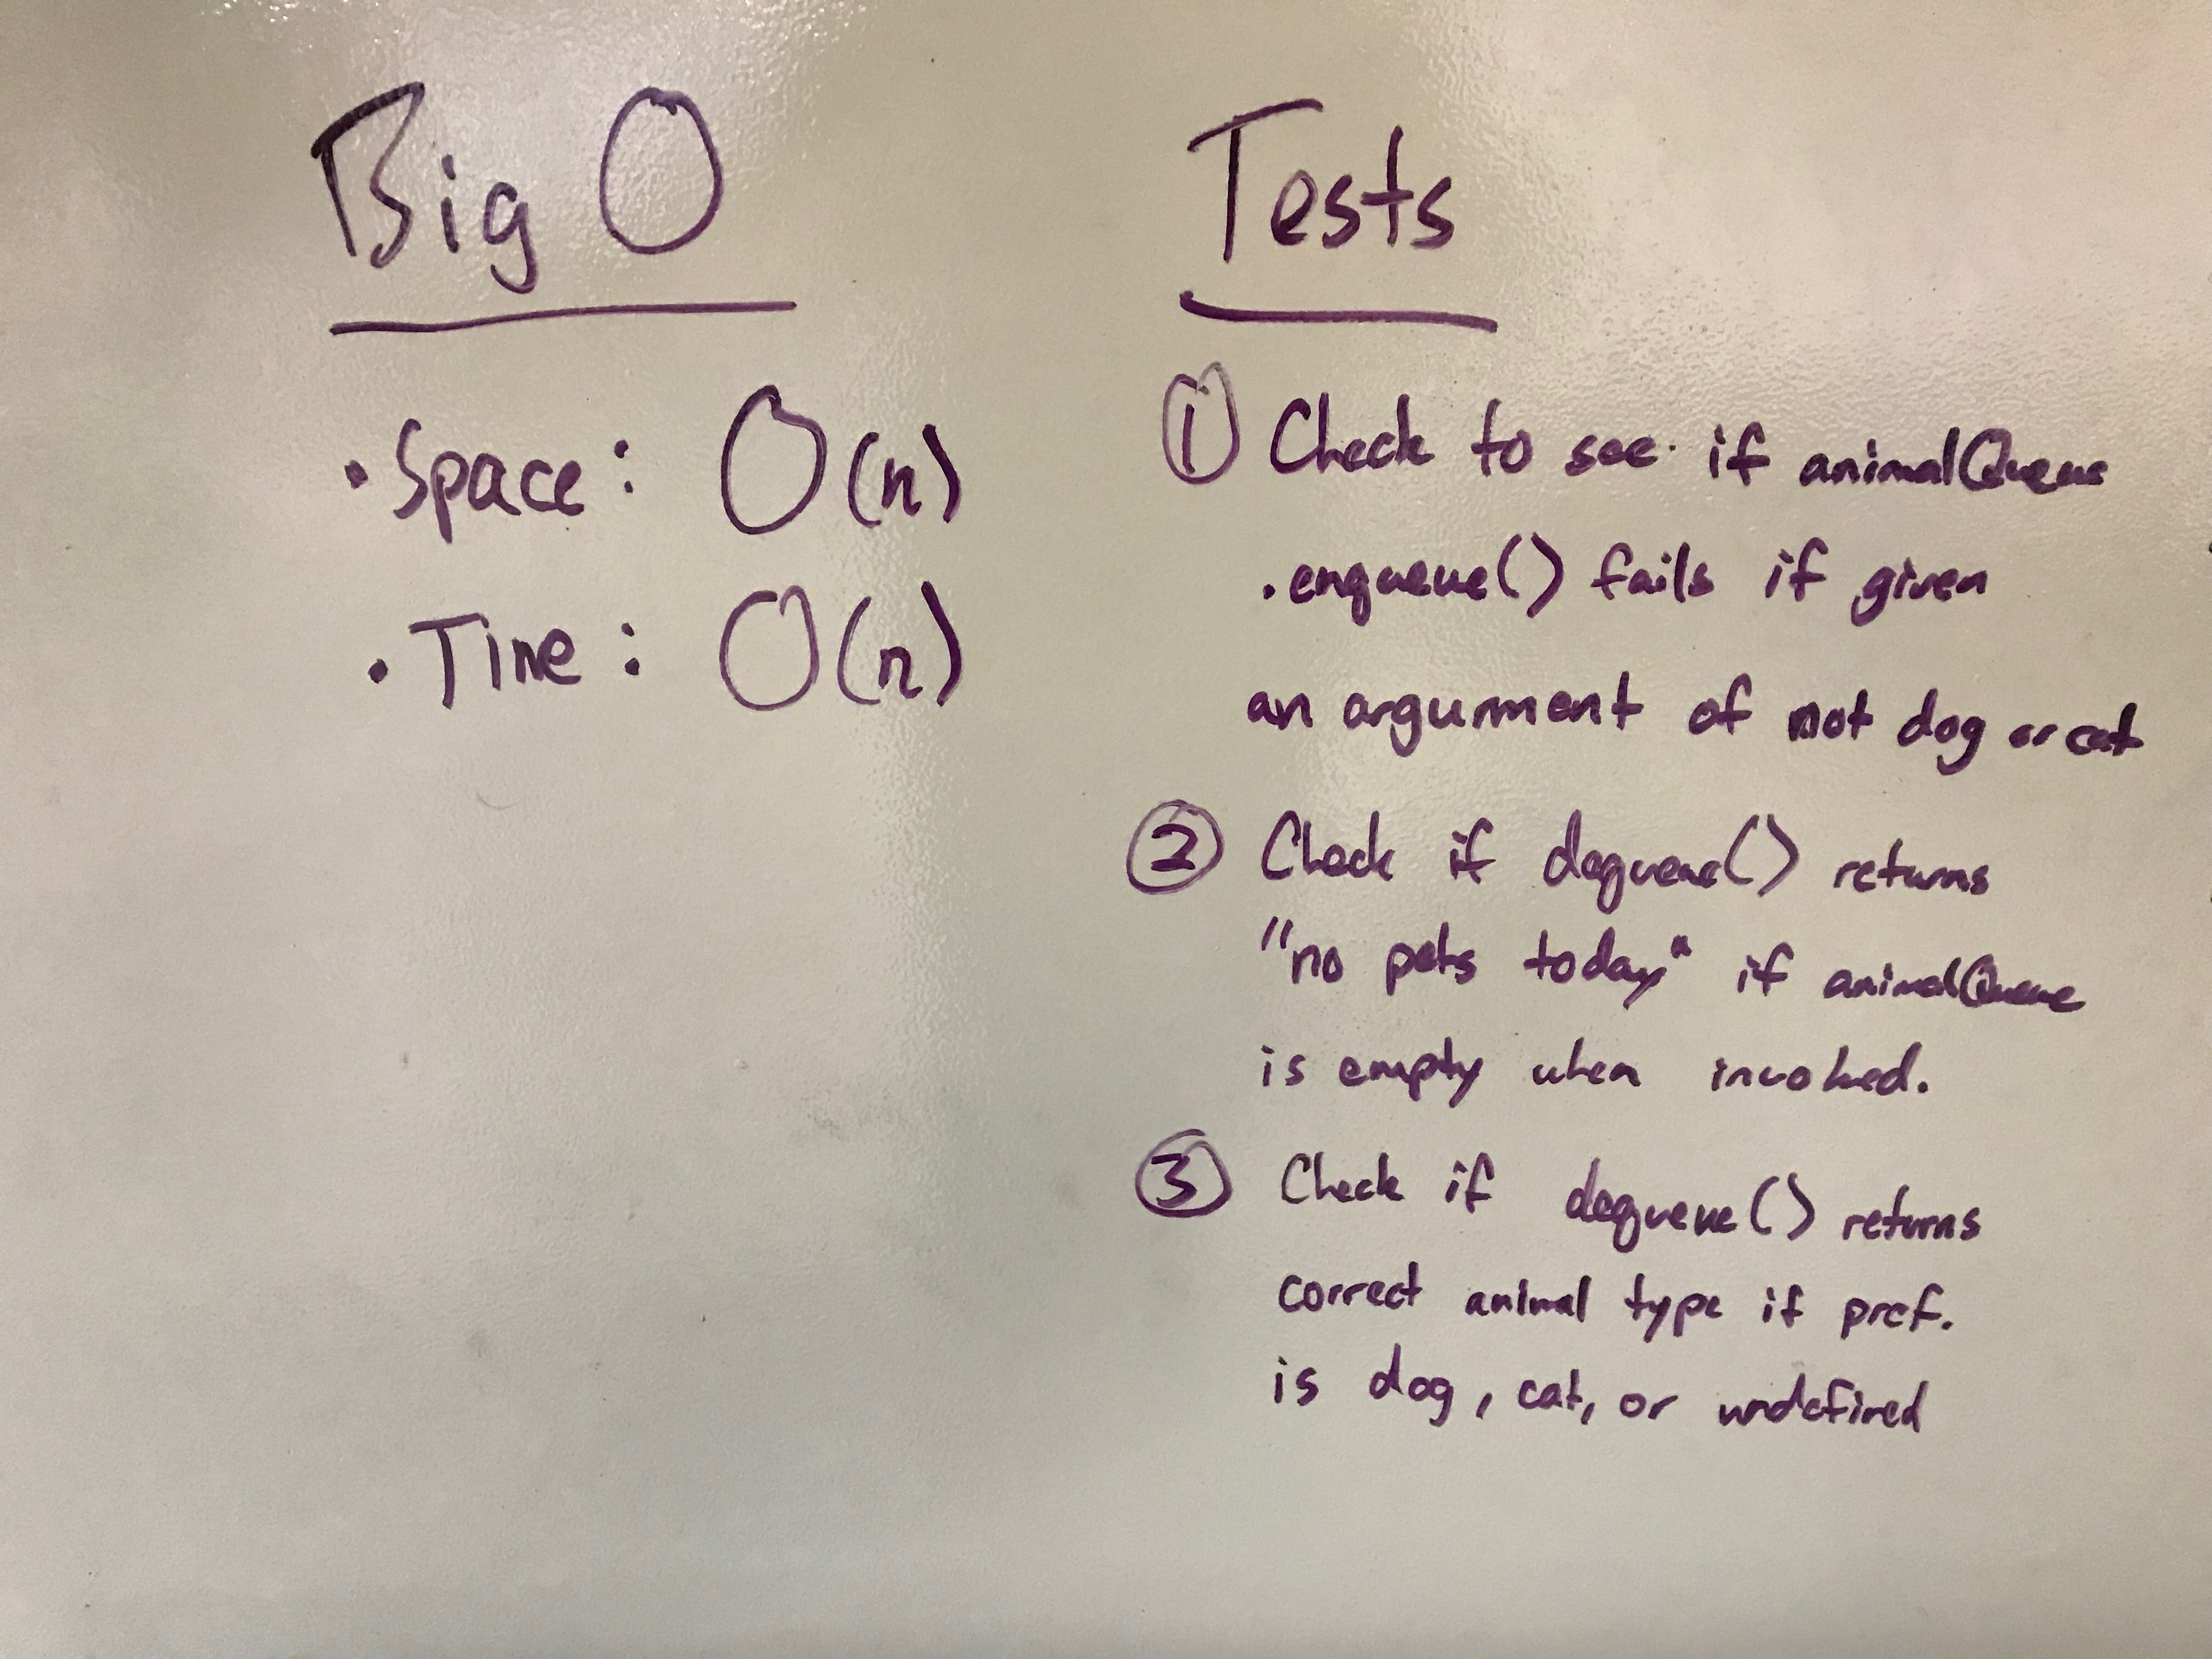 Big O
• Space: O(n)
• Time: O(n)
Tests
① Check to see if animalQueue
.enqueue() fails if given
an argument of not dog or cat
② Check if dequeue() returns
"no pets today" if animalQueue
is empty when invoked.
③ Check if dequeue() returns
correct animal type if pref.
is dog, cat, or undefined